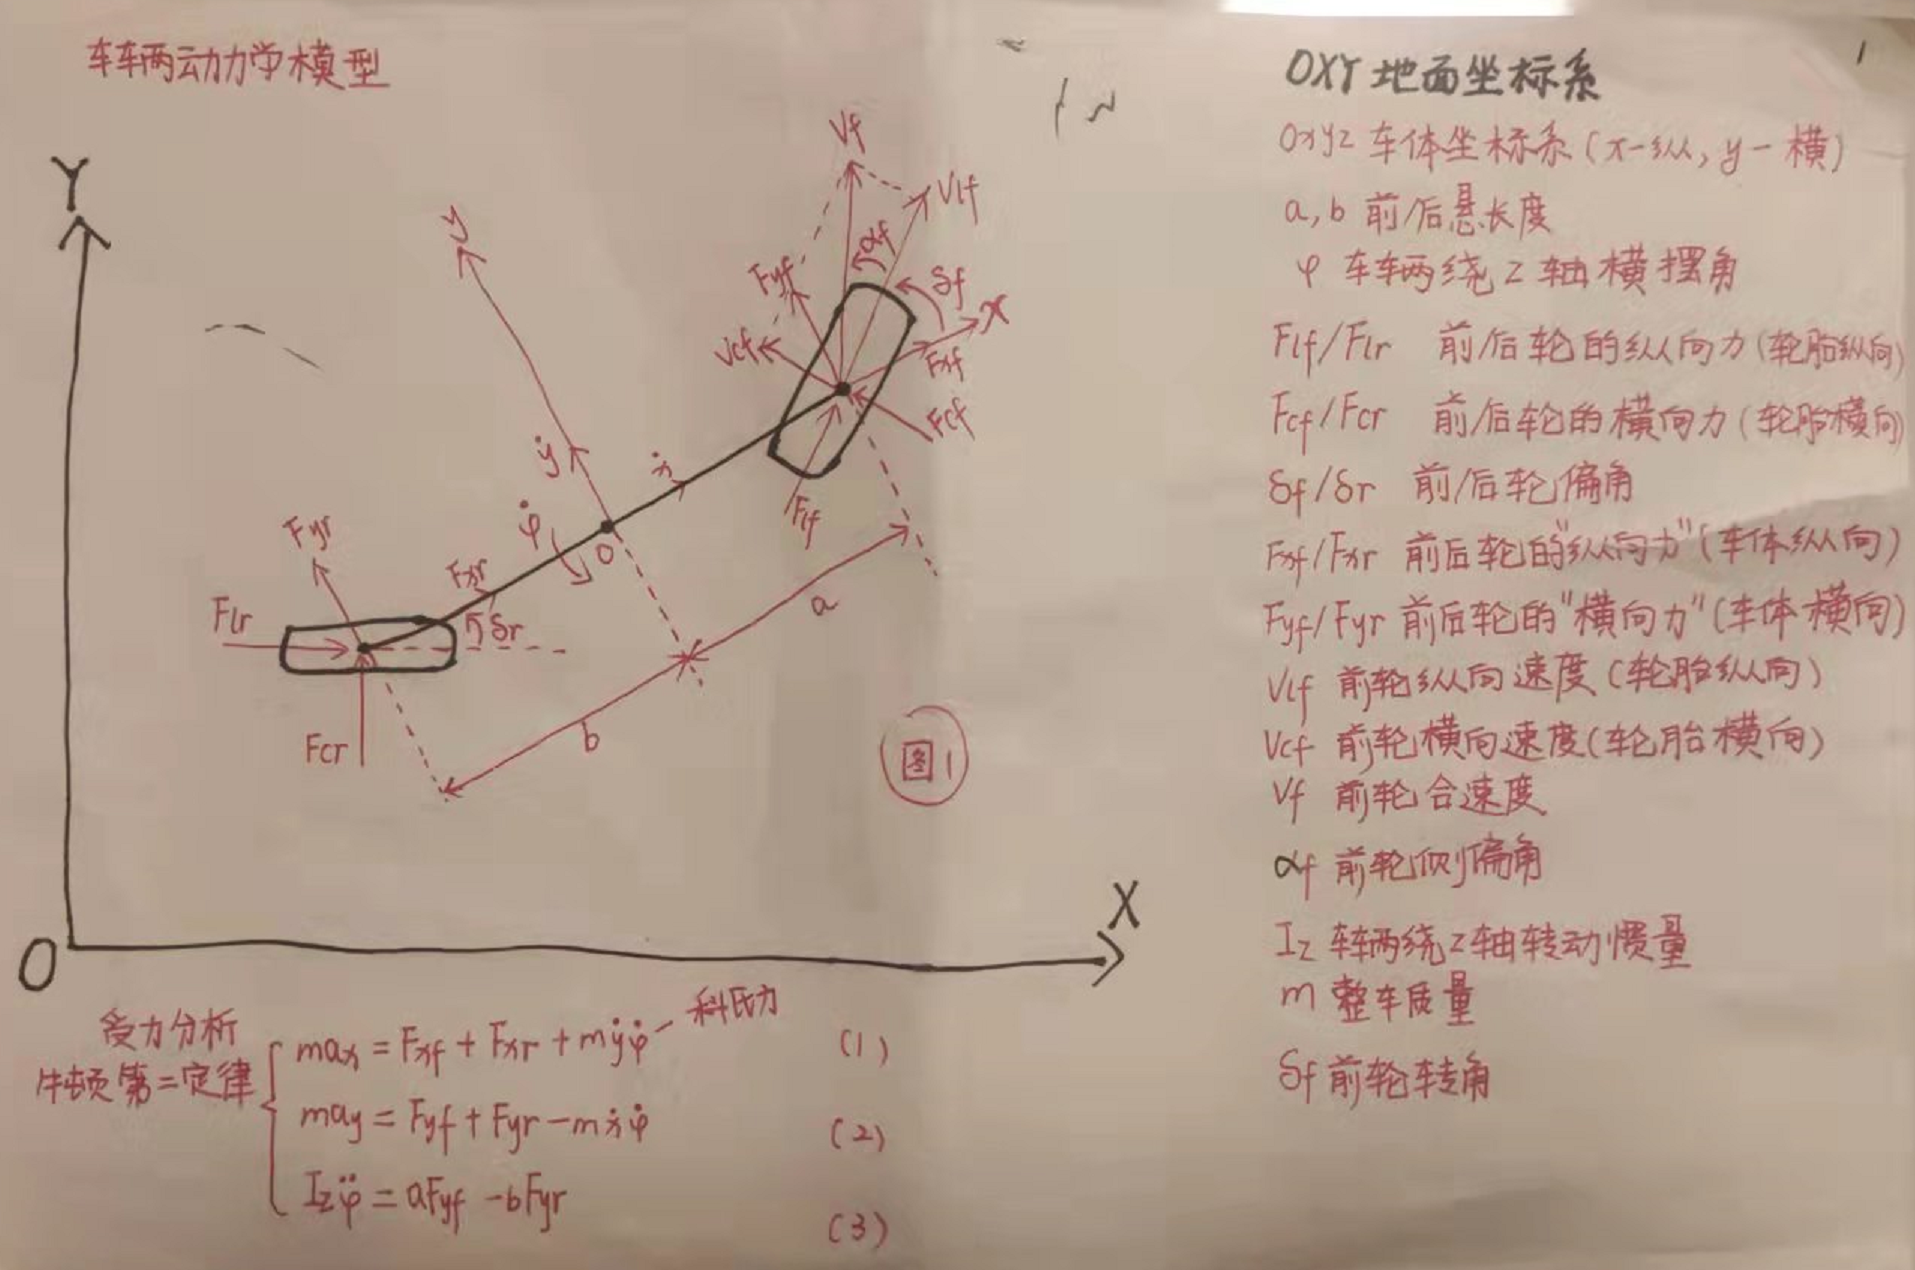 车辆动力学模型
Y
X
O
y
x
Vf
Vlf
αf
δf
Fyf
Vcf
Fxf
Fcf
Flf
ẏ
ẋ
φ̇
o
Fyr
Fxr
Flr
δr
Fcr
a
b
图1
受力分析
牛顿第二定律
max = Fxf + Fxr + mẏφ̇ — 科氏力 (1)
may = Fyf + Fyr - mẋφ̇ (2)
Izφ̈ = aFyf - bFyr (3)
1
OXY 地面坐标系
oxyz 车体坐标系(x-纵, y-横)
a, b 前/后悬长度
φ 车辆绕z轴横摆角
Flf/Flr 前/后轮的纵向力(轮胎纵向)
Fcf/Fcr 前/后轮的横向力(轮胎横向)
δf/δr 前/后轮偏角
Fxf/Fxr 前后轮的"纵向力"(车体纵向)
Fyf/Fyr 前后轮的"横向力"(车体横向)
Vlf 前轮纵向速度(轮胎纵向)
Vcf 前轮横向速度(轮胎横向)
Vf 前轮合速度
αf 前轮侧偏角
Iz 车辆绕z轴转动惯量
m 整车质量
δf 前轮转角